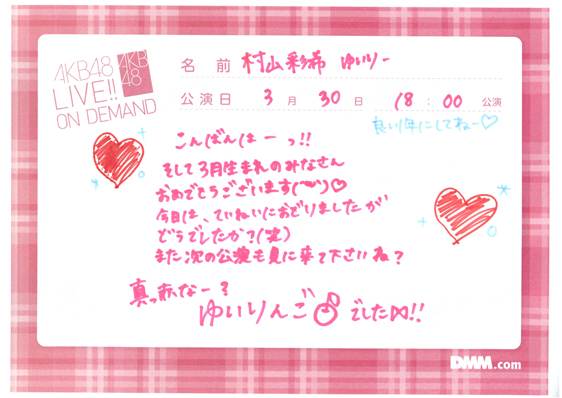 AKB48
LIVE!!
ON DEMAND
AKB
48
名 前 村山彩希 ゆいりー
公演日 3月30日 18:00 公演
良い1年にしてねー♡
こんばんはーっ!!
そして3月生まれのみなさん
おめでとうございます(^^)♡
今日は、ていねいにおどりましたが
どうでしたか?(笑)
また次の公演も見に来て下さいね?
真っ赤なー?
ゆいりんご でした!!
DMM.com